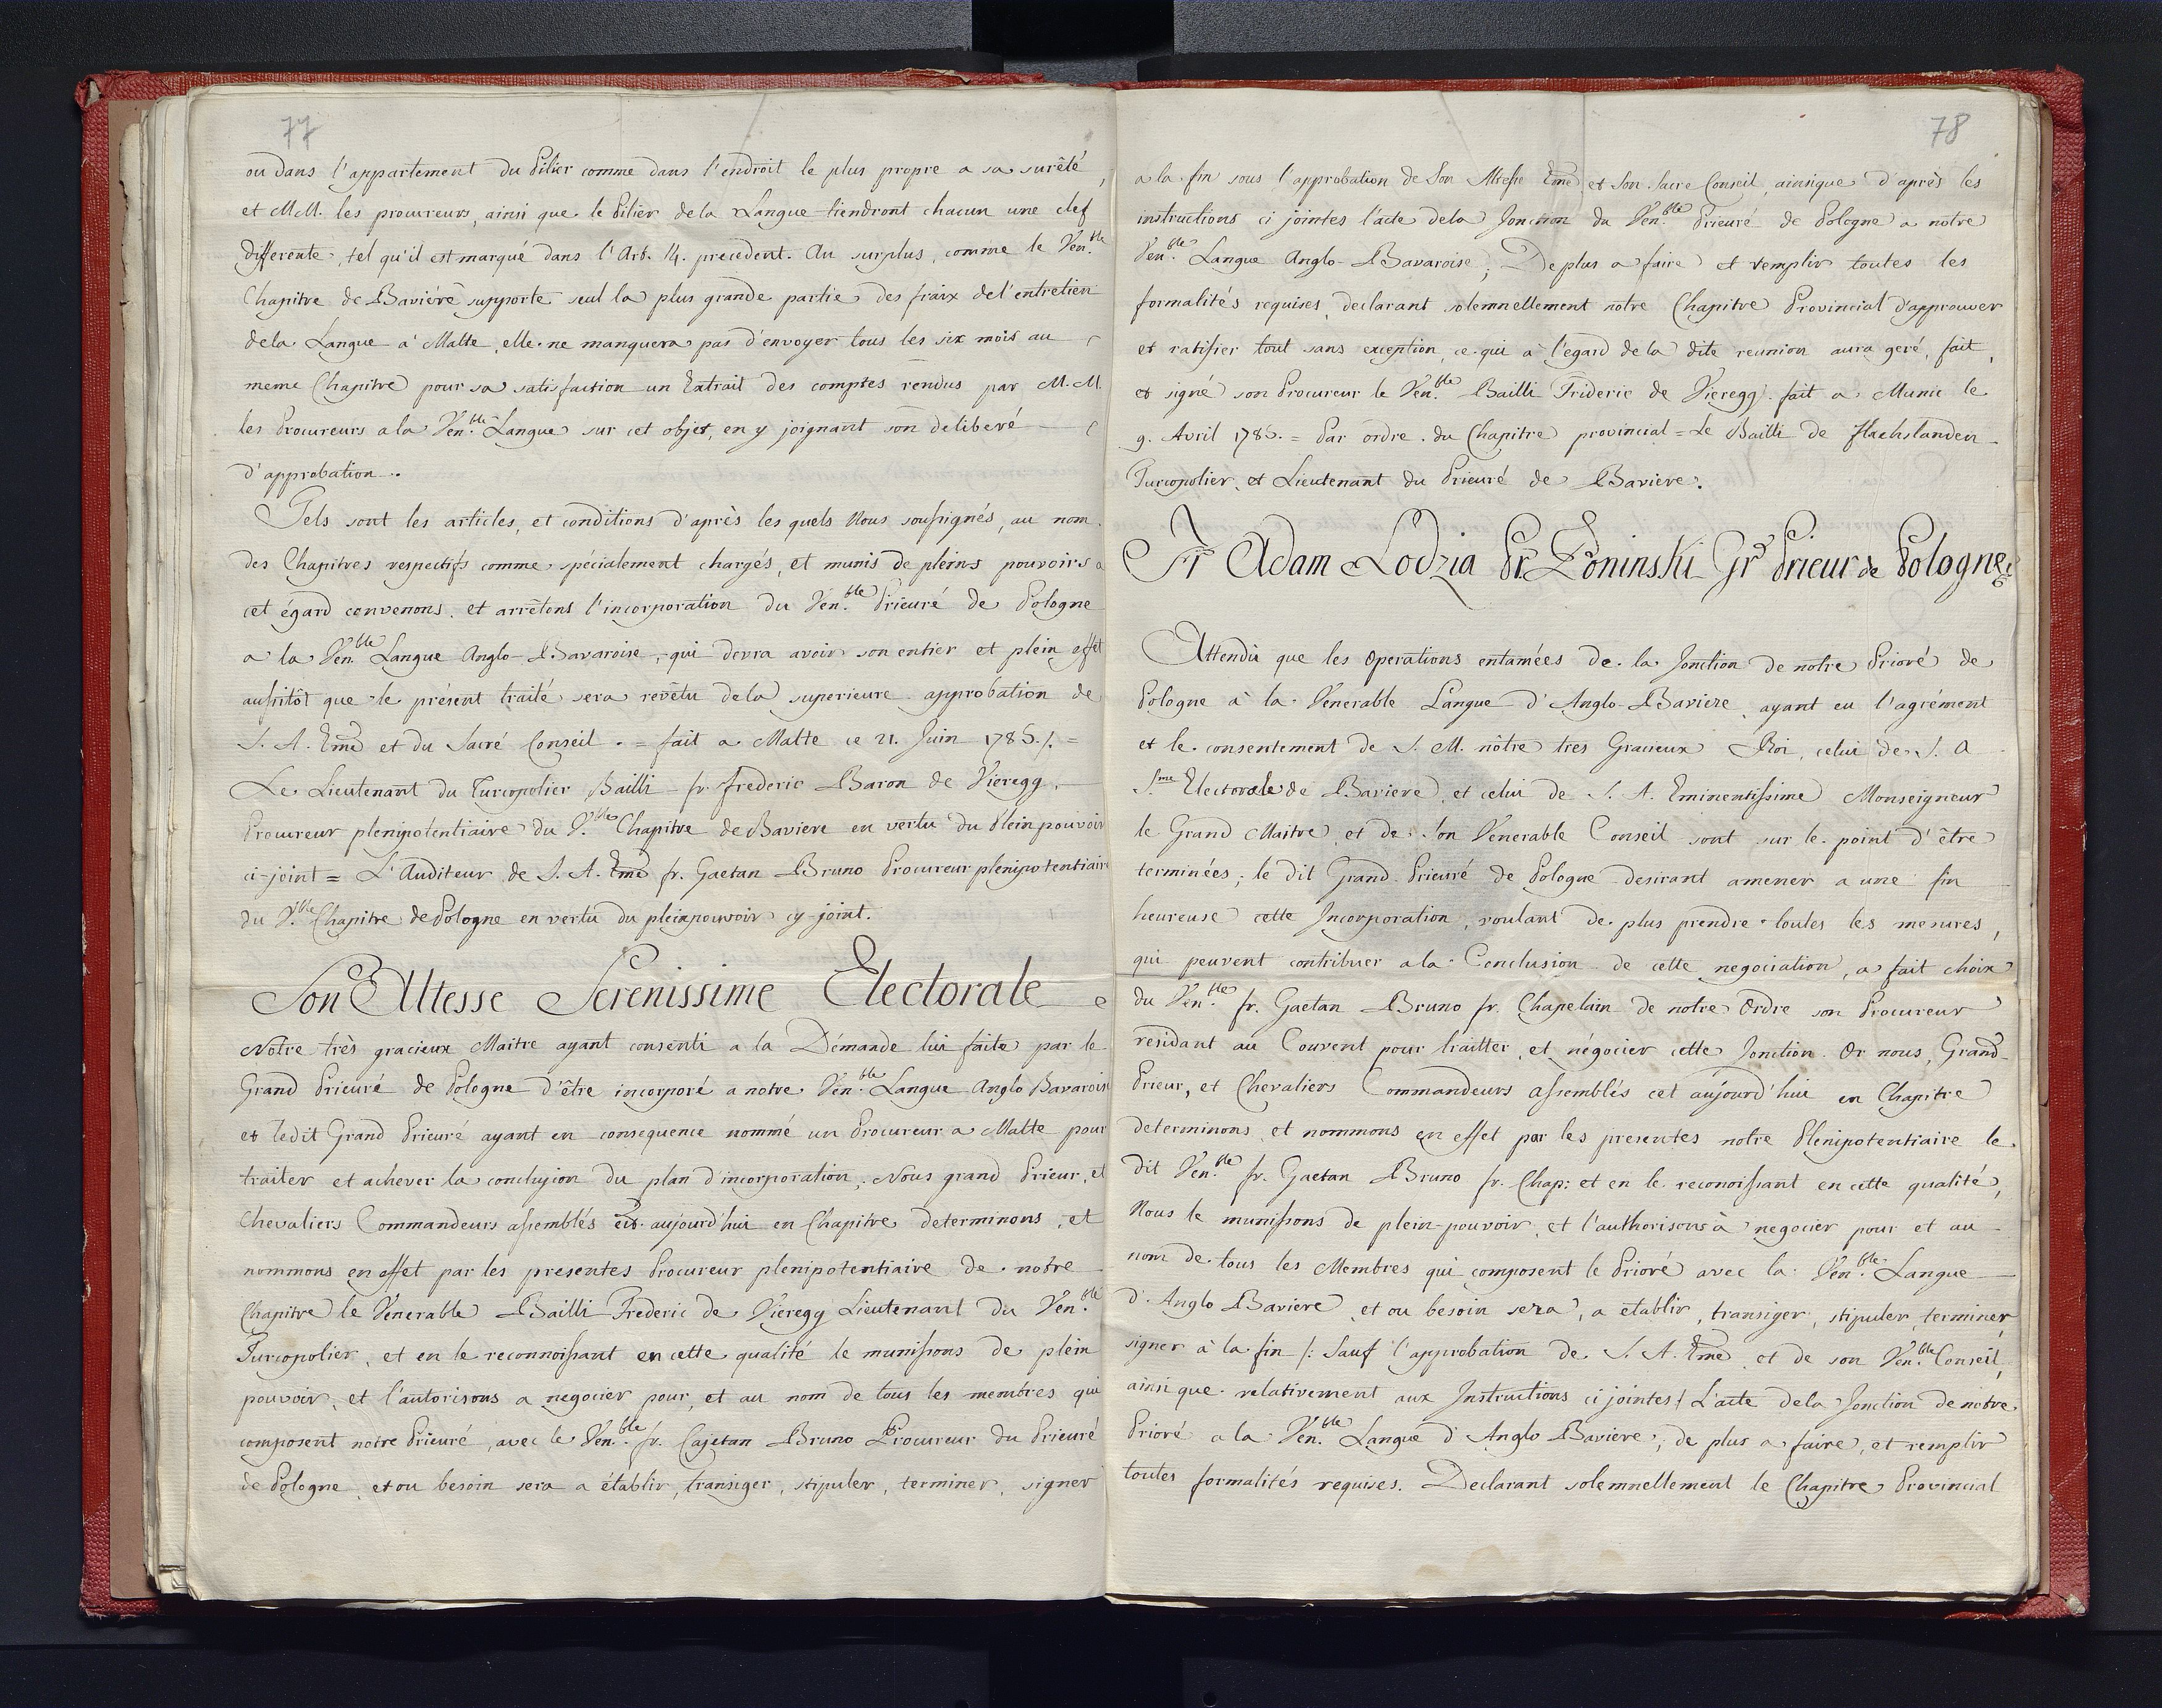 77
ou dans l'appartement du Pilier comme dans l'endroit le plus propre a sa sureté,
et MM. les procureurs, ainsi que le Pilier dela Langue tiendront chacun une clef
differente, tel qu'il est marqué dans l'Art. 14. precedent. Au surplus, comme le Ven.ble
Chapitre de Baviére supporte seul la plus grande partie des fraix del'entretien
dela Langue a Malte, elle ne manquera pas d'envoyer tous les six mois au
meme Chapitre pour sa satisfaction un Extrait des comptes rendus par M.M.
les Procureurs a la Ven.ble Langue sur cet objet, en y joignant son deliberé
d'approbation.
Tels sont les articles, et conditions d'après les quels Nous soussignés, au nom
des Chapitres respectifs comme spécialement chargés, et munis de pleins pouvoirs a
cet égard convenons, et arrêtons l'incorporation du Ven.ble Prieuré de Pologne
a la Ven.ble Langue Anglo-Bavaroise, qui devra avoir son entier et plein effet
aussitôt que le présent traité sera revêtu dela superieure approbation de
S. A. Eme et du Sacré Conseil. = fait a Malte ce 21. Juin 1785./. =
Le Lieutenant du Turcopolier Bailli fr. frederic Baron de Vieregg,
Procureur plenipotentiaire du V.ble Chapitre de Baviere en vertu du Plein pouvoir
ci-joint = L'Auditeur de S. A. Eme fr. Gaetan Bruno Procureur plenipotentiaire
du V.ble Chapitre de Pologne en vertu du pleinpouvoir cy-joint.
Son Altesse Serenissime Electorale
Notre très gracieux Maitre ayant consenti a la Démande lui faite par le
Grand Prieuré de Pologne d'être incorporé a notre Ven.ble Langue Anglo Bavaroise
et ledit Grand Prieuré ayant en consequence nommé un Procureur a Malte pour
traiter et achever la conclusion du plan d'incorporation; Nous grand Prieur, et
Chevaliers Commandeurs assemblés aujourd'hui en Chapitre determinons, et
nommons en effet par les presentes Procureur plenipotentiaire de notre
Chapitre le Venerable Bailli Frederic de Vieregg Lieutenant du Ven.ble
Turcopolier, et en le reconnoissant en cette qualité le munissons de plein
pouvoir, et l'autorisons a negocier pour, et au nom de tous les membres qui
composent notre Prieuré, avec le Ven.ble fr. Cajetan Bruno Procureur du Prieuré
de Pologne, et ou besoin sera a établir, transiger, stipuler, terminer, signer
78
a la fin sous l'approbation de Son Altesse Eme et Son Sacre Conseil ainsique d'après les
instructions ci jointes l'acte dela Jonction du Ven.ble Prieuré de Pologne a notre
Ven.ble Langue Anglo-Bavaroise; De plus a faire et remplir toutes les
formalités requises, declarant solemnellement notre Chapitre Provincial d'approuver
et ratifier tout sans exception, ce qui à l'egard de la dite reunion aura geré, fait,
et signé son Procureur le Ven.ble Bailli Frideric de Vieregg. fait a Munic le
9. Avril 1785. = Par ordre du Chapitre provincial = Le Bailli de Flachslanden
Turcopolier, et Lieutenant du Prieuré de Baviere.
Fr Adam Lodzia Pr. Poninski Gr Prieur de Pologne
Attendû que les Operations entamées de la Jonction de notre Prioré de
Pologne à la Venerable Langue d'Anglo-Baviere, ayant eu l'agrément
et le consentement de S. M. nôtre tres Gracieux Roi, celui de S. A
S.me Electorale de Baviere, et celui de S. A. Eminentissime Monseigneur
le Grand Maitre, et de Son Venerable Conseil sont sur le point d'être
terminées; le dit Grand Prieuré de Pologne desirant amener a une fin
heureuse cette Incorporation, voulant de plus prendre toutes les mesures,
qui peuvent contribuer a la Conclusion de cette negociation, a fait choix
du Ven.ble fr. Gaetan Bruno fr. Chapelain de notre Ordre son Procureur
residant au Couvent pour traitter, et négocier cette Jonction. Or nous, Grand-
Prieur, et Chevaliers Commandeurs assemblés cet aujourd'hui en Chapitre
determinons, et nommons en effet par les presentes notre Plenipotentiaire le
dit Ven.ble fr. Gaetan Bruno fr. Chap: et en le reconoissant en cette qualité,
Nous le munissons de plein-pouvoir, et l'authorisons à negocier pour et au
nom de tous les Membres qui composent le Prioré avec la Ven.ble Langue
d'Anglo Baviere, et ou besoin sera, a etablir, transiger, stipuler, terminer,
signer à la fin /: Sauf l'approbation de S. A. Eme, et de son Ven.ble Conseil,
ainsi que relativement aux Instructions ci jointes / L'acte dela Jonction de notre
Prioré a la Ven.ble Langue d'Anglo Baviere; de plus a faire, et remplir
toutes formalités requises. Declarant solemnellement le Chapitre Provincial